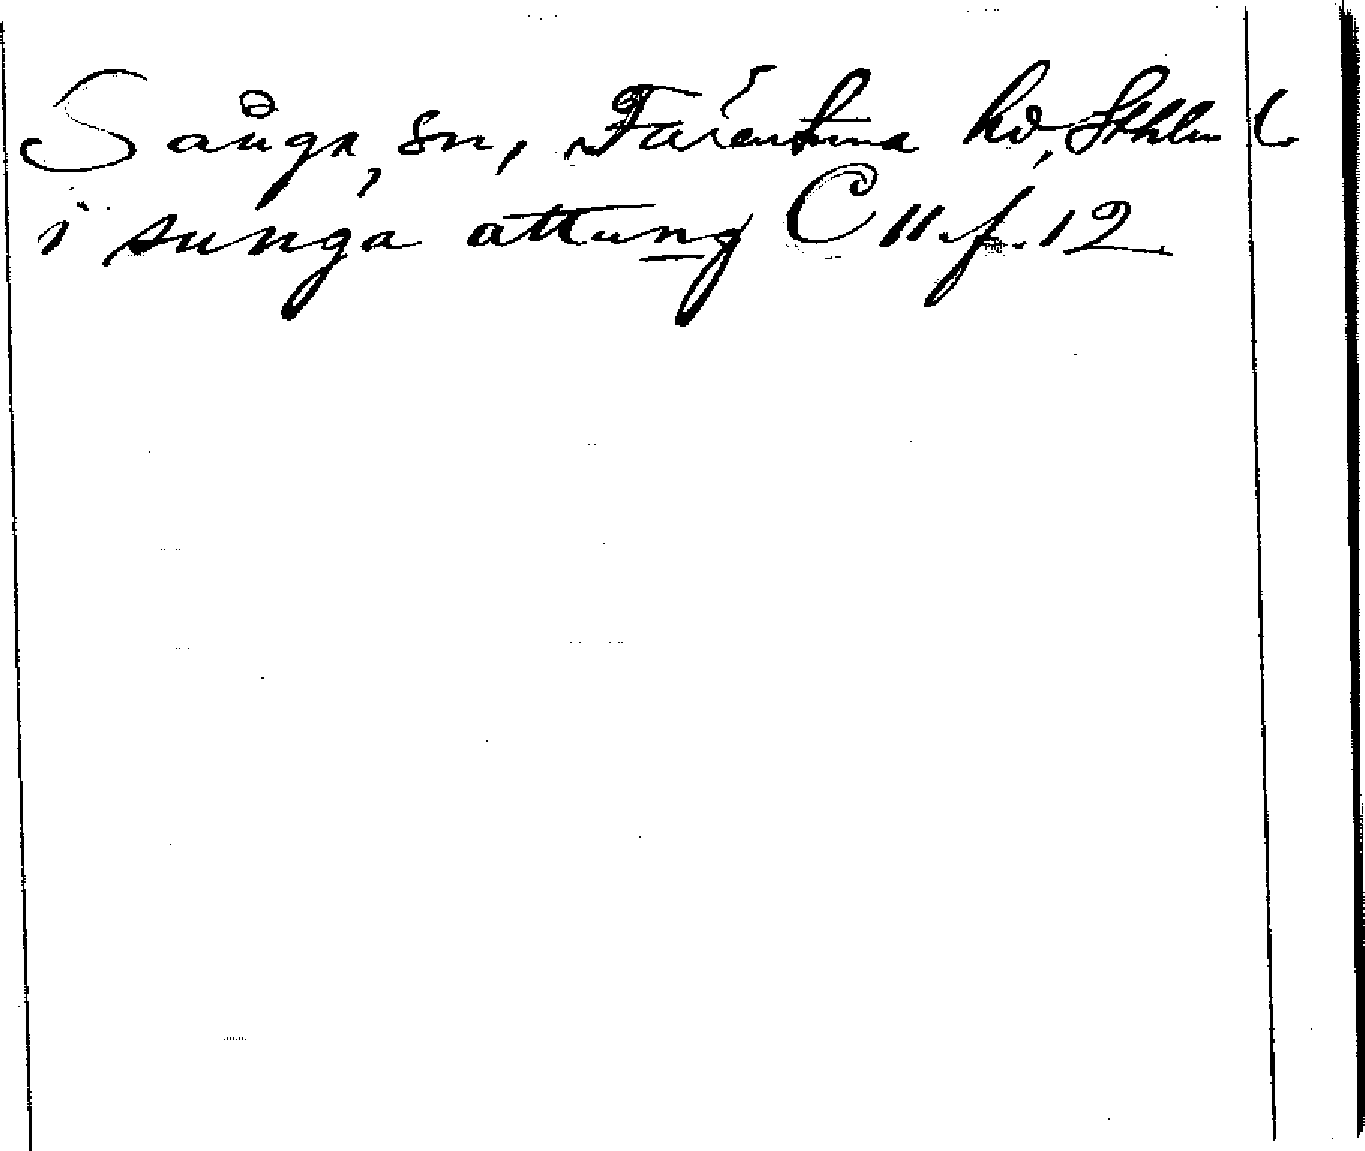 Sånga, sn, Färentuna hd, Sthlm l.
i sunga attung C 11 f. 12